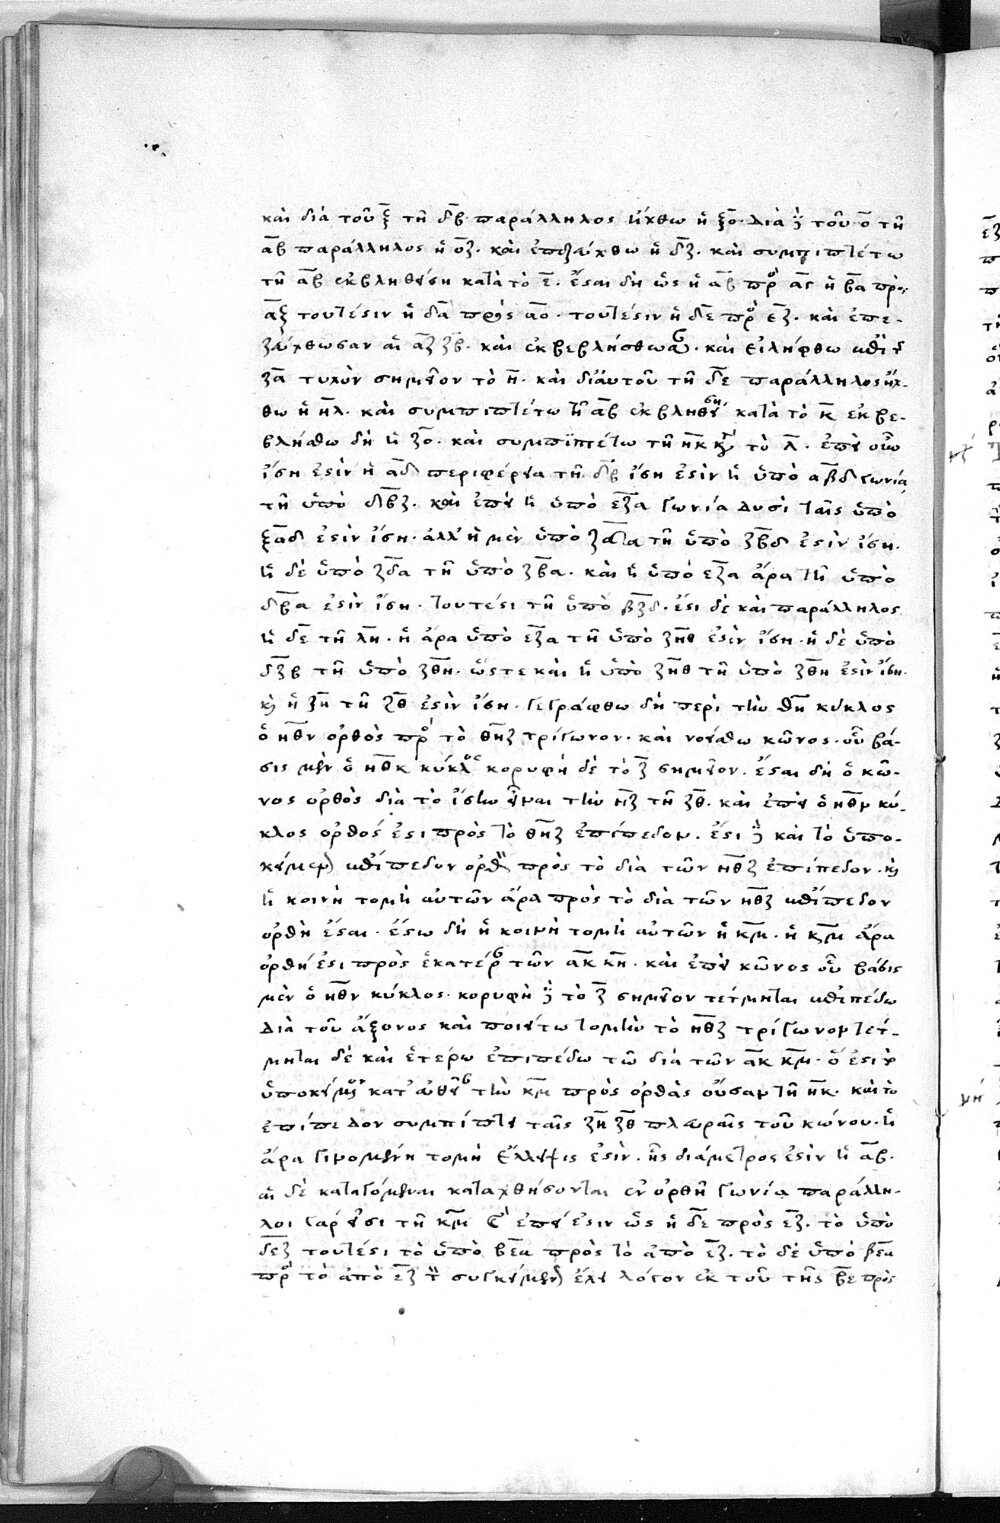 καὶ διὰ τοῦ ξ̅ τῇ δ̅β̅ παράλληλος ἤχθω ἡ ξ̅ο̅· διὰ δὲ τοῦ ο̅ τῇ
α̅β̅ παράλληλος ἡ ο̅ζ̅. καὶ ἐπεζεύχθω ἡ δ̅ζ̅. καὶ συμπιπτέτω
τῇ α̅β̅ ἐκβληθείση κατὰ τὸ ε̅. ἔσται δὴ ὡς ἡ α̅β̅ πρὸς α̅ϛ̅ ἡ β̅α̅ πρὸς
α̅ξ̅ τουτέστιν ἡ δ̅α̅ πρὸς α̅ο̅. τουτέστιν ἡ δ̅ε̅ πρὸς ε̅ζ̅. καὶ ἐπε-
ζεύχθωσαν αἱ α̅ζ̅ ζ̅β̅. καὶ ἐκβεβλήσθωσαν. καὶ εἰλήφθω ἐπὶ τῆς
ζ̅α̅ τυχὸν σημεῖον τὸ η̅. καὶ δι' αὐτοῦ τῇ δ̅ε̅ παράλληλος ἤχ-
θω ἡ η̅λ̅. καὶ συμπιπτέτω τῇ α̅β̅ ἐκβληθείση κατὰ τὸ κ̅ ἐκβε-
βλήσθω δὴ ἡ ζ̅ο̅. καὶ συμπιπτέτω τῇ η̅κ̅ κατὰ τὸ λ̅. ἐπεὶ οὖν
ἴση ἐστὶν ἡ α̅δ̅ περιφέρεια τῇ δ̅β̅ ἴση ἐστὶν ἡ ὑπὸ α̅β̅δ̅ γωνία
τῇ ὑπὸ δ̅β̅ζ̅. καὶ ἐπεὶ ἡ ὑπὸ ε̅ζ̅α̅ γωνία δυσὶ ταῖς ὑπὸ
ζ̅α̅δ̅ ἐστὶν ἴση. ἀλλ' ἡ μὲν ὑπὸ ζ̅α̅δ̅ τῇ ὑπὸ ζ̅β̅δ̅ ἐστὶν ἴση.
ἡ δὲ ὑπὸ ζ̅δ̅α̅ τῇ ὑπὸ ζ̅β̅α̅. καὶ ἡ ὑπὸ ε̅ζ̅α̅ ἄρα τῇ ὑπὸ
δ̅β̅α̅ ἐστὶν ἴση. τουτέστι τῇ ὑπὸ β̅ζ̅δ̅. ἔστι δὲ καὶ παράλληλος
ἡ δ̅ε̅ τῇ λ̅η̅. ἡ ἄρα ὑπὸ ε̅ζ̅α̅ τῇ ὑπὸ ζ̅η̅θ̅ ἐστὶν ἴση. ἡ δὲ ὑπὸ
δ̅ζ̅β̅ τῇ ὑπὸ ζ̅θ̅η̅. ὥστε καὶ ἡ ὑπὸ ζ̅η̅θ̅ τῇ ὑπὸ ζ̅θ̅η̅ ἐστὶν ἴση.
καὶ ἡ ζ̅η̅ τῇ ζ̅θ̅ ἐστὶν ἴση. γεγράφθω δὴ περὶ τὴν θ̅η̅ κύκλος
ὁ η̅θ̅ν̅ ὀρθὸς πρὸς τὸ θ̅η̅ζ̅ τρίγωνον. καὶ νοείσθω κῶνος. οὗ βά-
σις μὲν ὁ η̅θ̅κ̅ κύκλος κορυφὴ δὲ τὸ ζ̅ σημεῖον. ἔσται δὴ ὁ κῶ-
νος ὀρθὸς διὰ τὸ ἴσην εἶναι τὴν η̅ζ̅ τῇ ζ̅θ̅. καὶ ἐπεὶ ὁ η̅θ̅ν̅ κύ-
κλος ὀρθός ἐστι πρὸς τὸ θ̅η̅ζ̅ ἐπίπεδον. ἔστι δὲ καὶ τὸ ὑπο-
κείμενον ἐπίπεδον ὀρθὸν πρὸς τὸ διὰ τῶν η̅θ̅ζ̅ ἐπίπεδον. καὶ
ἡ κοινὴ τομὴ αὐτῶν ἄρα πρὸς τὸ διὰ τῶν η̅θ̅ζ̅ ἐπίπεδον
ὀρθὴ ἔσται. ἔστω δὴ ἡ κοινὴ τομὴ αὐτῶν ἡ κ̅μ̅. ἡ κ̅μ̅ ἄρα
ὀρθή ἐστι πρὸς ἑκατέραν τῶν α̅κ̅ κ̅η̅. καὶ ἐπεὶ κῶνος οὗ βάσις
μὲν ὁ η̅θ̅ν̅ κύκλος. κορυφὴ δὲ τὸ ζ̅ σημεῖον τέτμηται ἐπιπέδω
διὰ τοῦ ἄξονος καὶ ποιείτω τομὴν τὸ η̅θ̅ζ̅ τρίγωνον τέτ-
μηται δὲ καὶ ἑτέρω ἐπιπέδω τῶ διὰ τῶν α̅κ̅ κ̅μ̅. ὅ ἐστι τὸ
ὑποκείμενον κατ' εὐθεῖαν τὴν κ̅μ̅ πρὸς ὀρθὰς οὖσαν τῇ η̅κ̅. καὶ τὸ
ἐπίπεδον συμπίπτει ταῖς ζ̅η̅ ζ̅θ̅ πλευραῖς τοῦ κώνου. ἡ
ἄρα γινομένη τομὴ ἔλλειψις ἐστὶν. ἧς διάμετρος ἐστὶν ἡ α̅β̅.
αἱ δὲ καταγόμεναι καταχθήσονται ἐν ὀρθῇ γωνία παράλλη-
λοι γάρ εἰσι τῇ κ̅μ̅ καὶ ἐπεί ἐστιν ὡς ἡ δ̅ε̅ πρὸς ε̅ζ̅. τὸ ὑπὸ
δ̅ε̅ζ̅ τουτέστι τὸ ὑπὸ β̅ε̅α̅ πρὸς τὸ ἀπὸ ε̅ζ̅. τὸ δὲ ὑπὸ β̅ε̅α̅
πρὸς τὸ ἀπὸ ε̅ζ̅ τὸν συγκείμενον ἔχει λόγον ἐκ τοῦ τῆς β̅ε̅ πρὸς